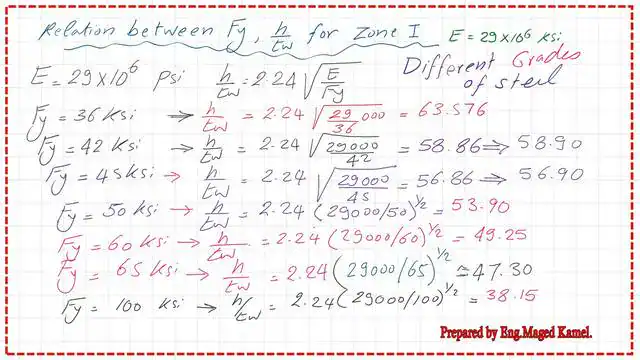 Relation between Fy, h/tw for Zone I E = 29x10⁶ Ksi
E = 29x10⁶ psi h/tw = 2.24 √(E/Fy) Different Grades of steel
Fy = 36 Ksi → h/tw = 2.24 √(29000/36) = 63.576
Fy = 42 Ksi → h/tw = 2.24 √(29000/42) = 58.86 ⇒ 58.90
Fy = 45 Ksi → h/tw = 2.24 √(29000/45) = 56.86 ⇒ 56.90
Fy = 50 Ksi → h/tw = 2.24 (29000/50)^1/2 = 53.90
Fy = 60 Ksi → h/tw = 2.24 (29000/60)^1/2 = 49.25
Fy = 65 Ksi → h/tw = 2.24 (29000/65)^1/2 ≃ 47.30
Fy = 100 Ksi → h/tw = 2.24 (29000/100)^1/2 = 38.15
Prepared by Eng.Maged Kamel.